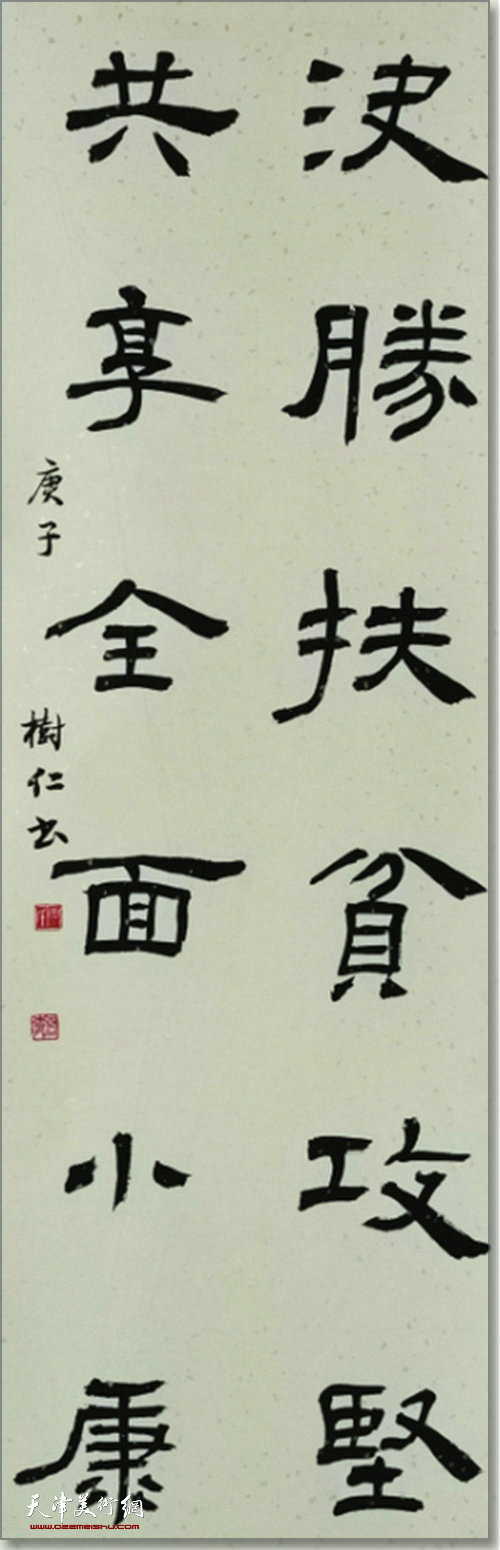 决勝扶貧攻堅
共享全面小康
庚子
樹仁书
天津美術網
www.022meishu.com